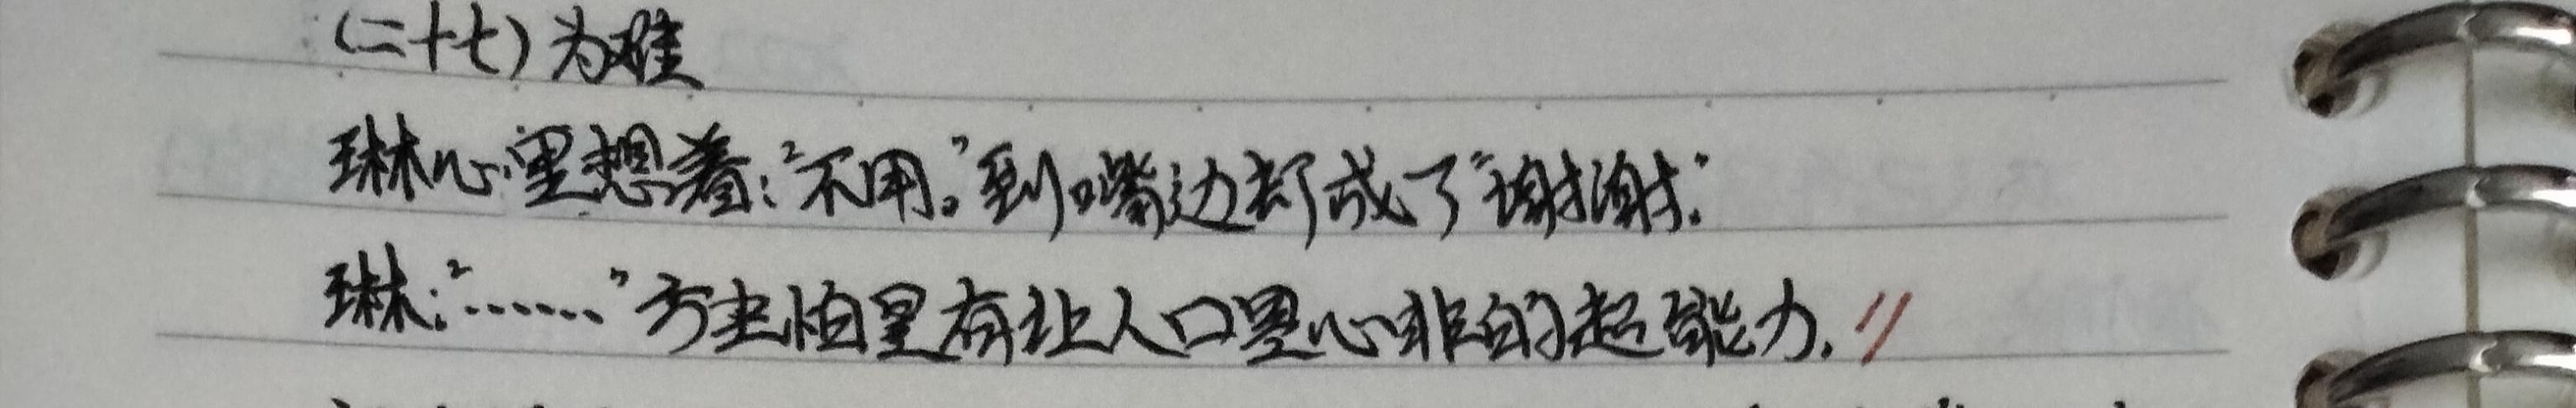 (二十七)为难
琳心里想着:“不用。”到嘴边却成了“谢谢.”
琳:“……”方主怕是有让人口是心非的超能力.